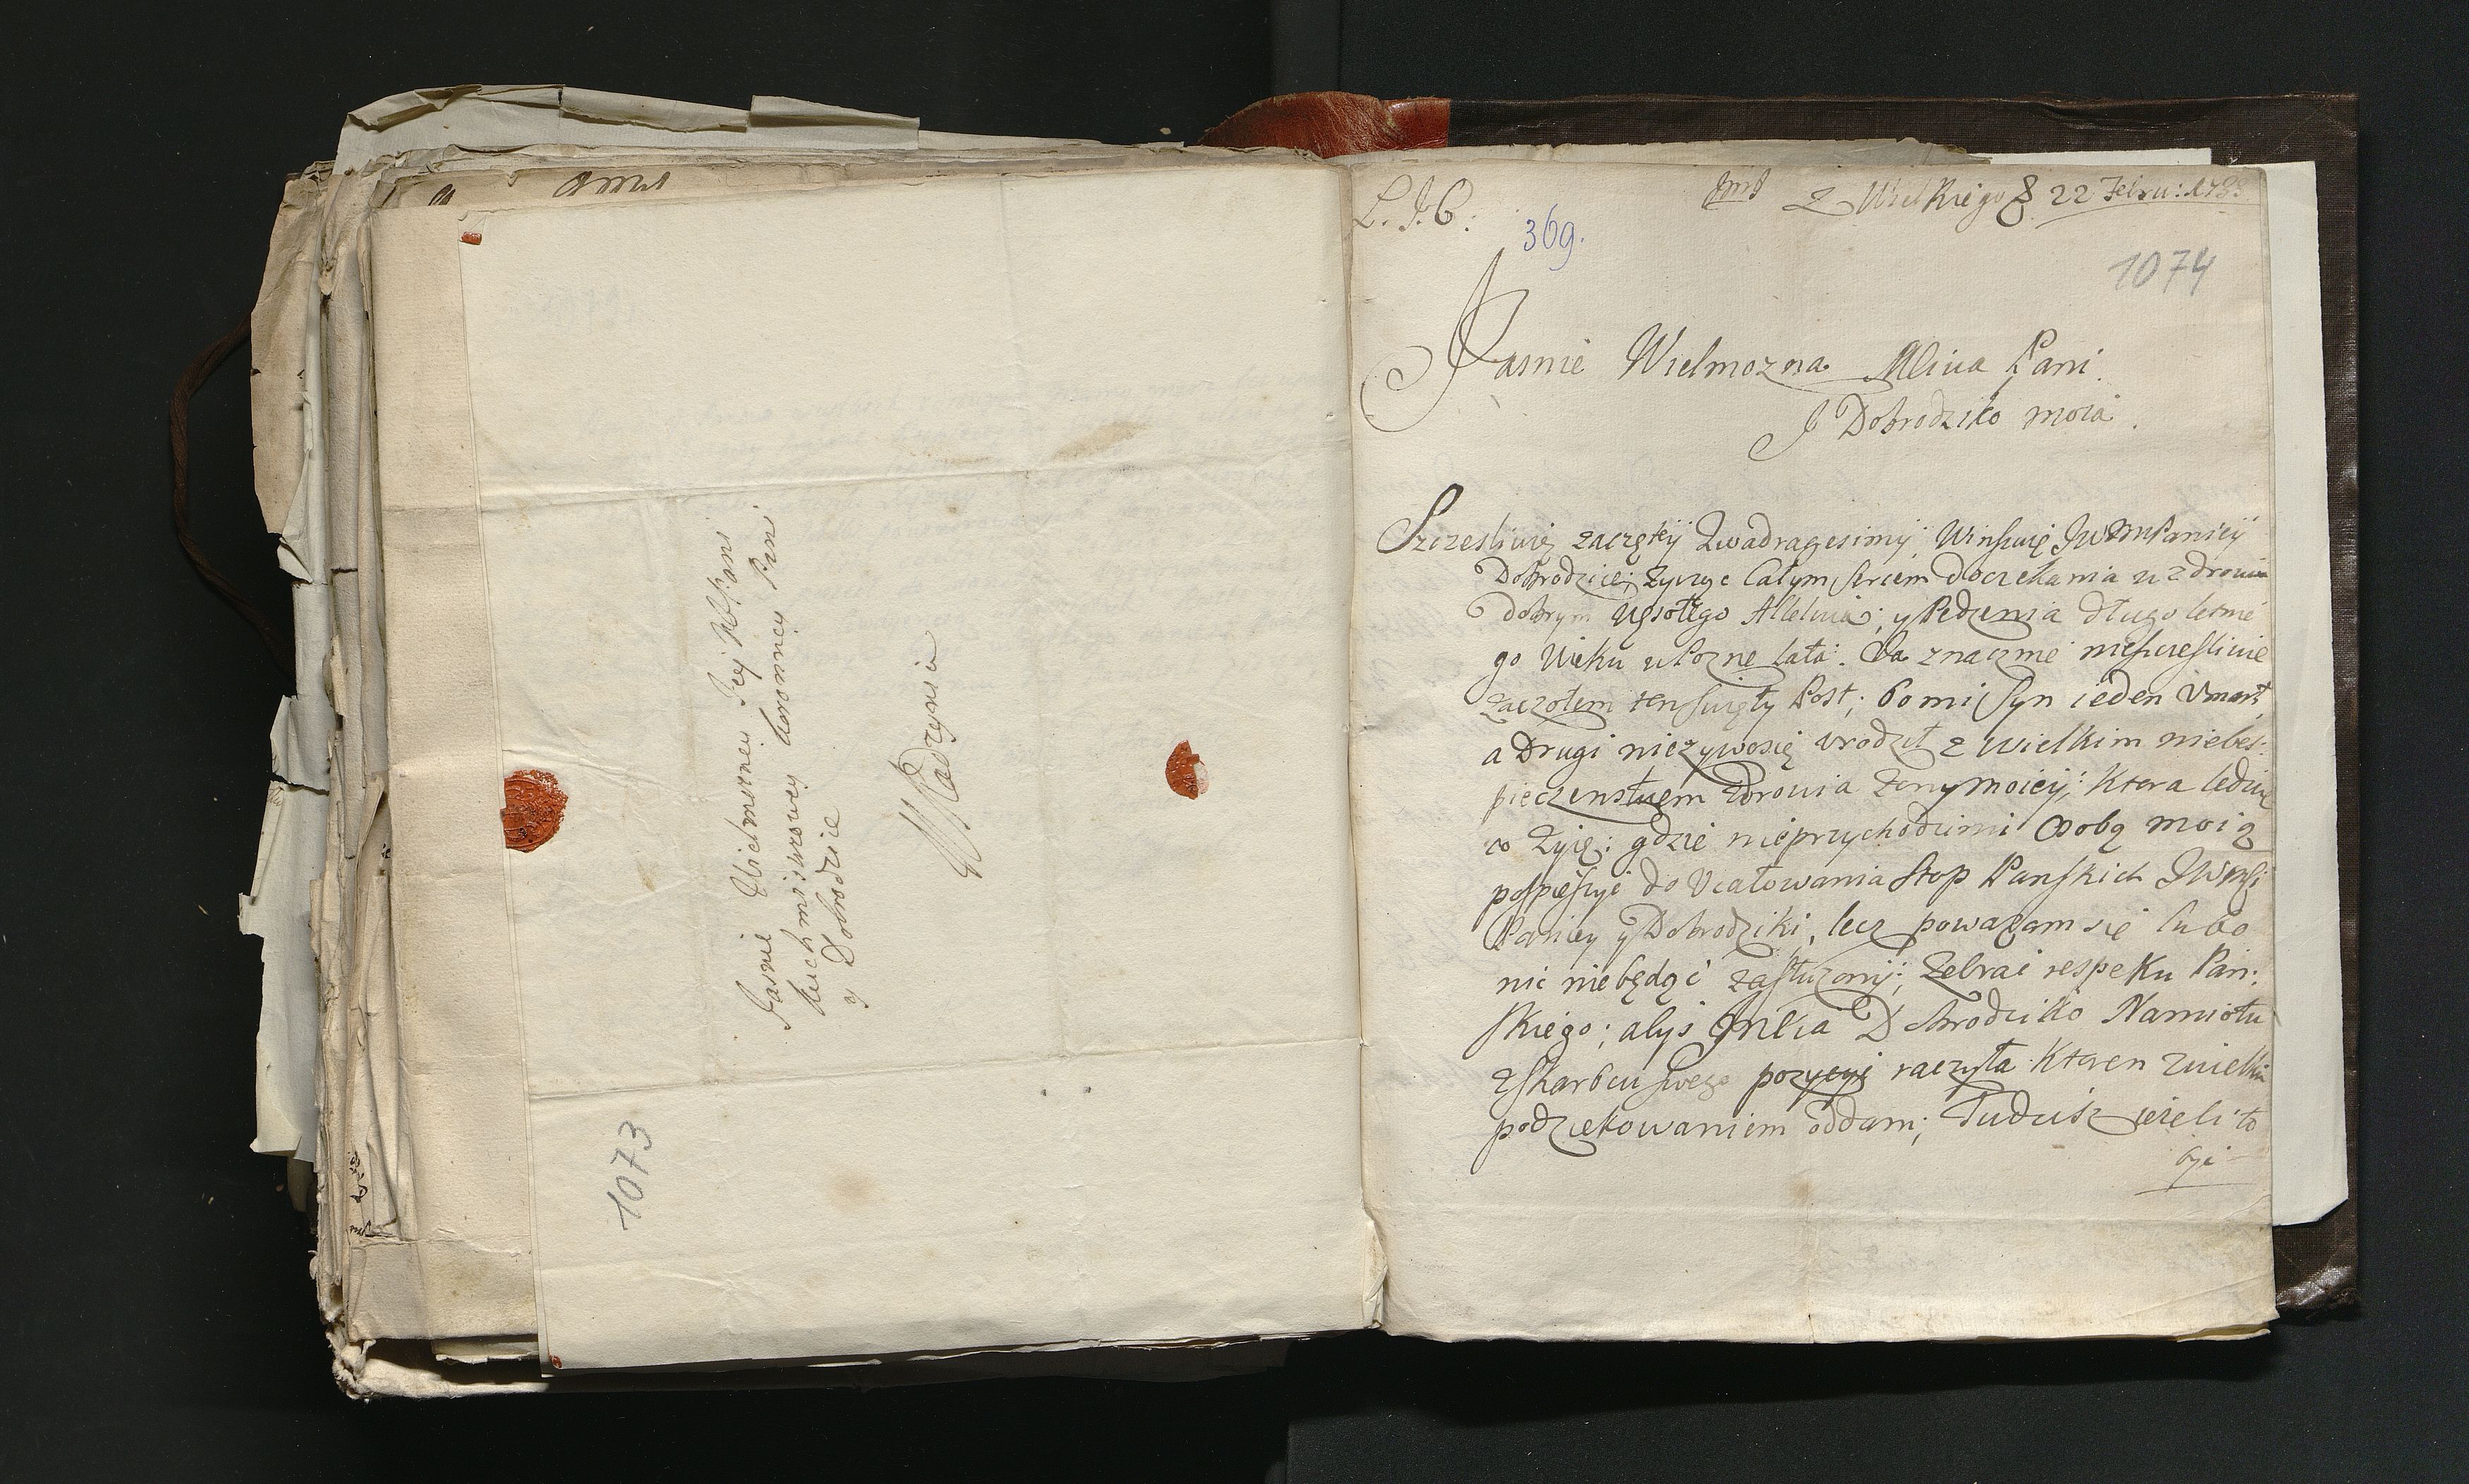 Jasnie Wielmozney Jey MPani
Kuchmistrzowey koronney Pani
y Dobrodzice
W Radzyniu
1073
L. J. C:
369.
Z Wielkiego 22 Febru: 173
1074
Jasnie Wielmozna Mliwa Pani
J Dobrodziko moia.
Szczesliwię zaczętÿ Quadragesimÿ, Winszuię JWMPanieÿ
Dobrodzice, Zyczęc Całym sercem doczekania w zdrowiu
dobrym Wesołego Alleluia; y Pędzenia długo letnie
go Wieku w Pozne lata. Ja znacznie nieszczesliwie
zaczołem ten swięty Post; bo mi Syn ieden Vmarł
a Drugi nieżywosię vrodzł z wielkim niebes:
pieczenstwem zdrowia Zony moieÿ; Ktora ledwię
co Zyię: gdzie nieprzychodzimi Osobą moią
pospieszyć do Vcałowania Stop Panskich JWMsci
Paniey y Dobrodziki, lecz powazam się lubo
nic niebędąć zasłuzonÿ; Zebrać respektu Pan:
skiego; abys Dobrodziko Namiotu
z skarbcu swego pozyczyć raczyła Ktoren z wielkim
podziękowaniem oddam; Tudzisz ieżeli to
być